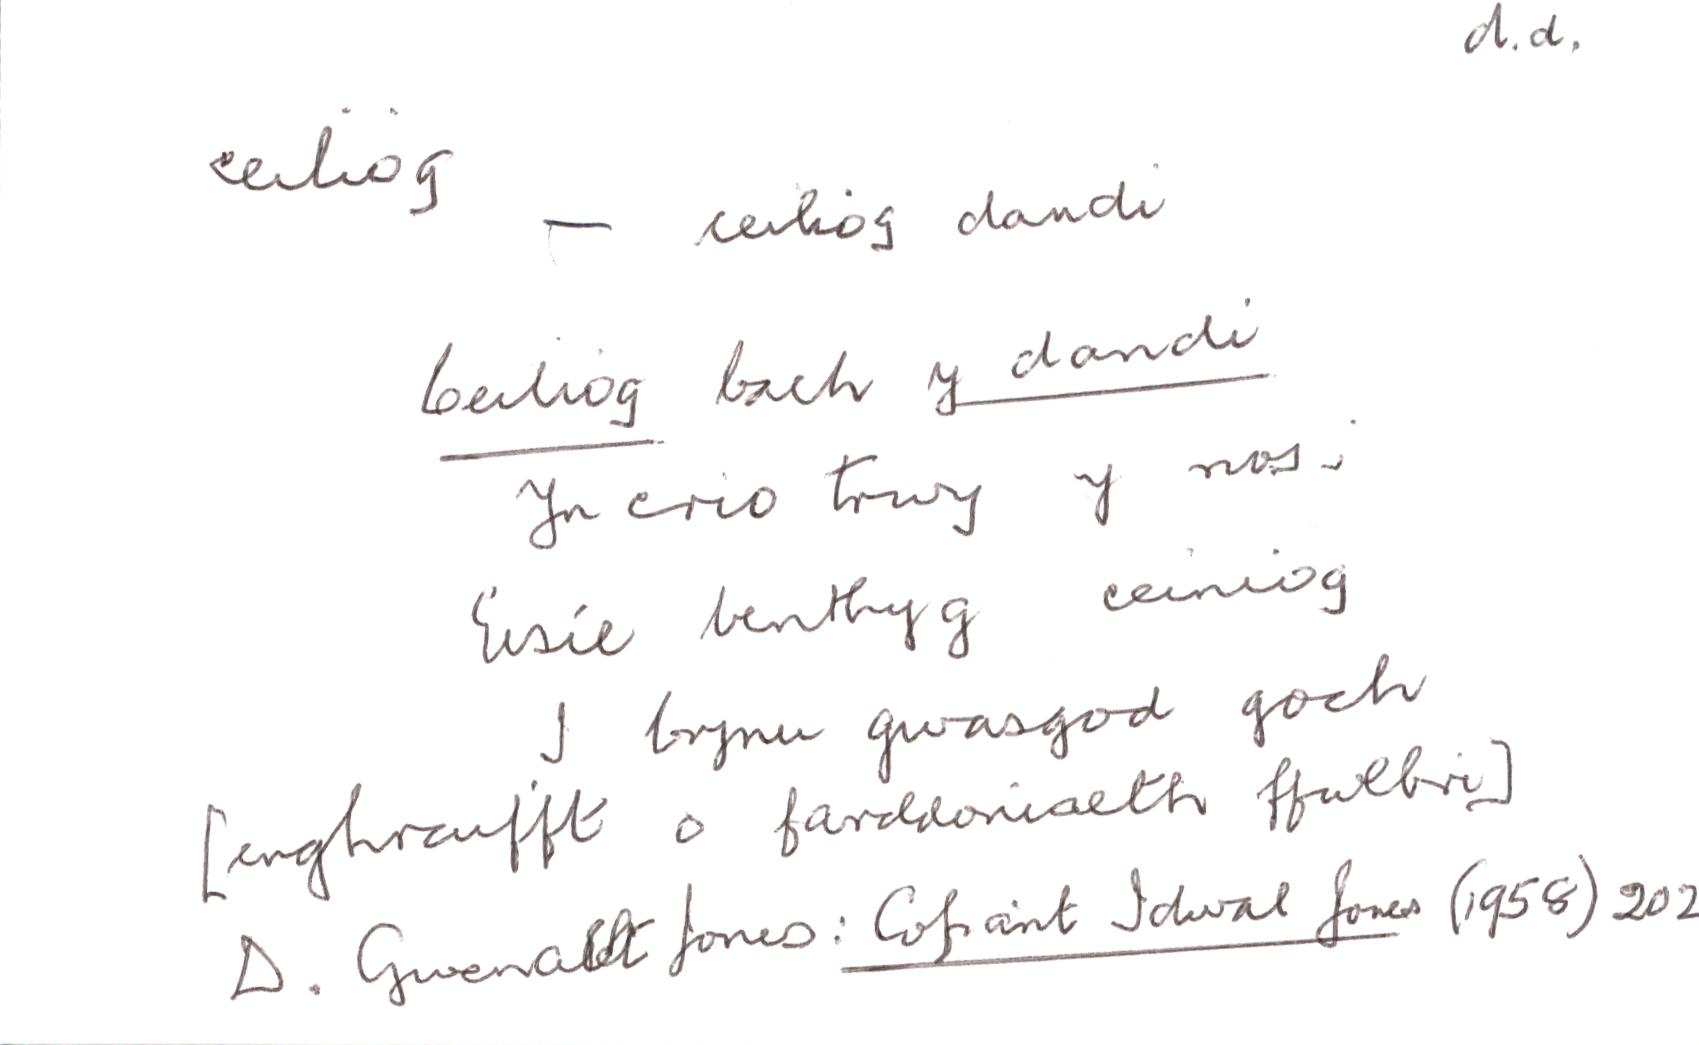 d.d.
ceiliog
— ceiliog dandi
Ceiliog bach y dandi
Yn crio trwy y nos;
Eisie benthyg ceiniog
I brynu gwasgod goch
[enghraifft o farddoniaeth ffwlbri]
D. Gwenallt Jones: Cofiant Idwal Jones (1958) 202